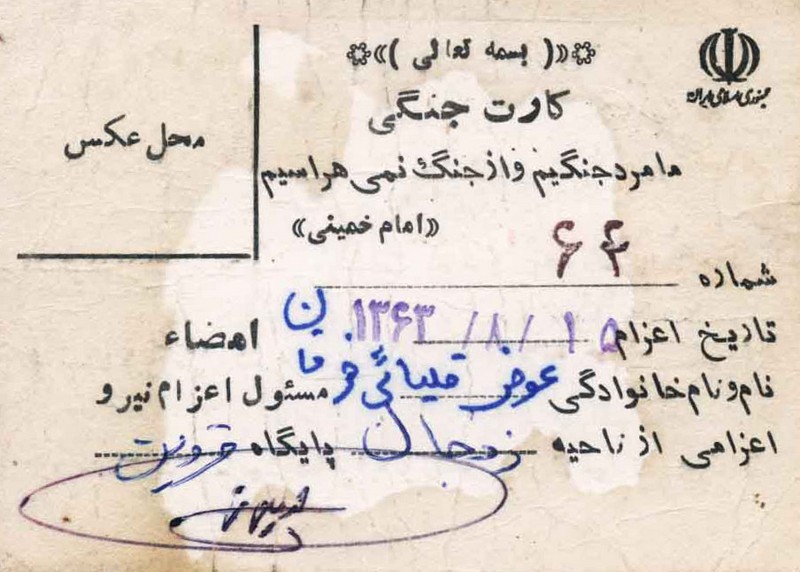 جمهوری اسلامی ایران
«( بسمه تعالی )»
کارت جنگی
محل عکس
ما مرد جنگیم و از جنگ نمی هراسیم
«امام خمینی»
شماره ۶۴
تاریخ اعزام ۱۵ / ۸ / ۱۳۶۳ امضاء
نام و نام خانوادگی عوض قلیائی مسئول اعزام نیرو
اعزامی از ناحیه زنجان پایگاه